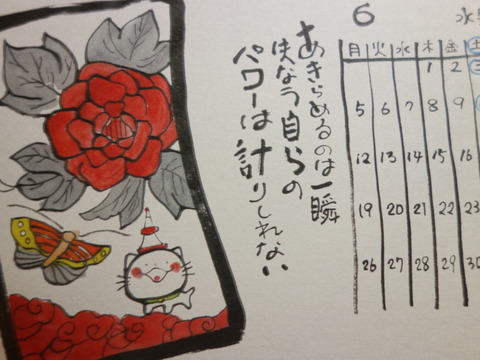 あきらめるのは一瞬
失なう自らの
パワーは計りしれない
6 水
月 火 水 木 金 土
1 2 3
5 6 7 8 9
12 13 14 15 16
19 20 21 22 23
26 27 28 29 30